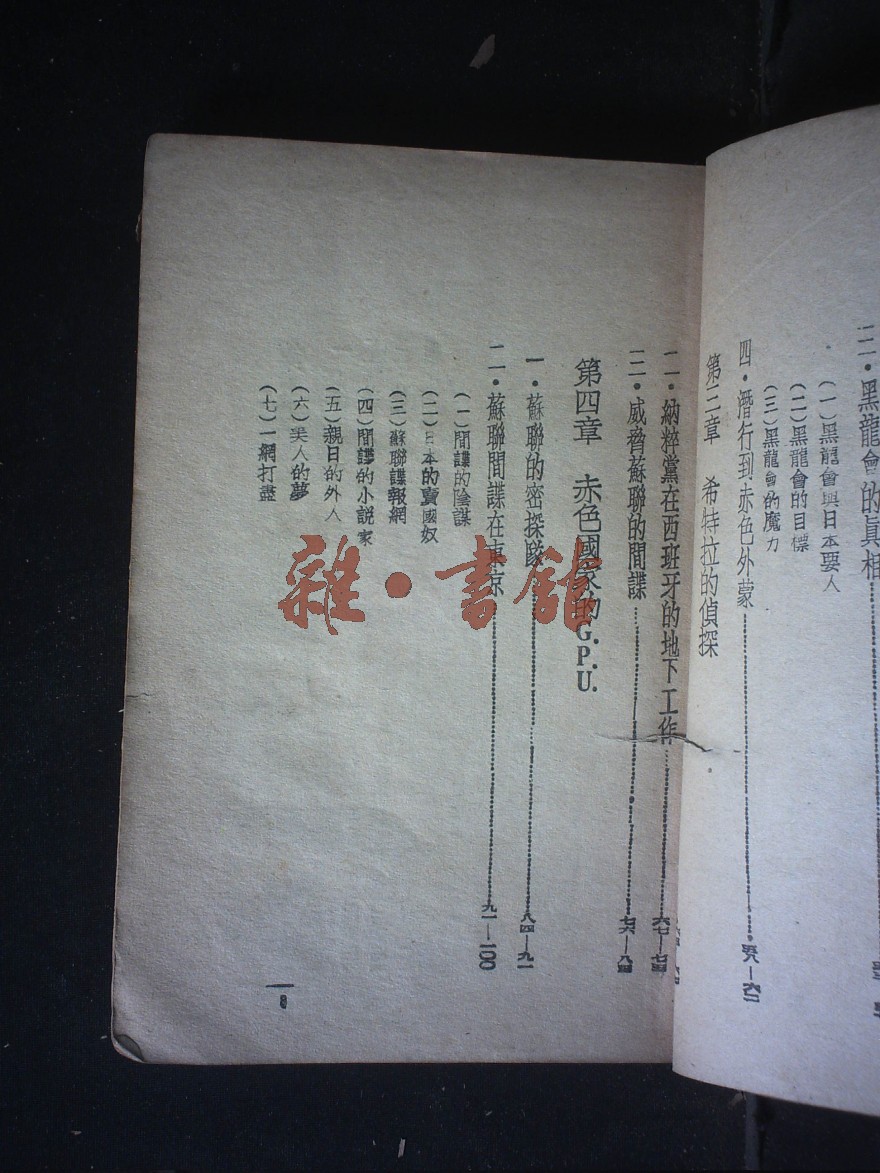 二・黑龍會的眞相
(一)黑龍會與日本要人
(二)黑龍會的目標
(三)黑龍會的魔力
四・潛行到赤色外蒙……五八—六二
第三章 希特拉的偵探
二・納粹黨在西班牙的地下工作……六七—七四
三・威脅蘇聯的間諜……七六—八四
第四章 赤色國家的G.P.U.
一・蘇聯的密探隊……八四—九一
二・蘇聯間諜在東京……九一—一00
(一)間諜的陰謀
(二)日本的賣國奴
(三)蘇聯諜報網
(四)間諜的小說家
(五)親日的外人
(六)美人的夢
(七)一網打盡
8
雜・書館